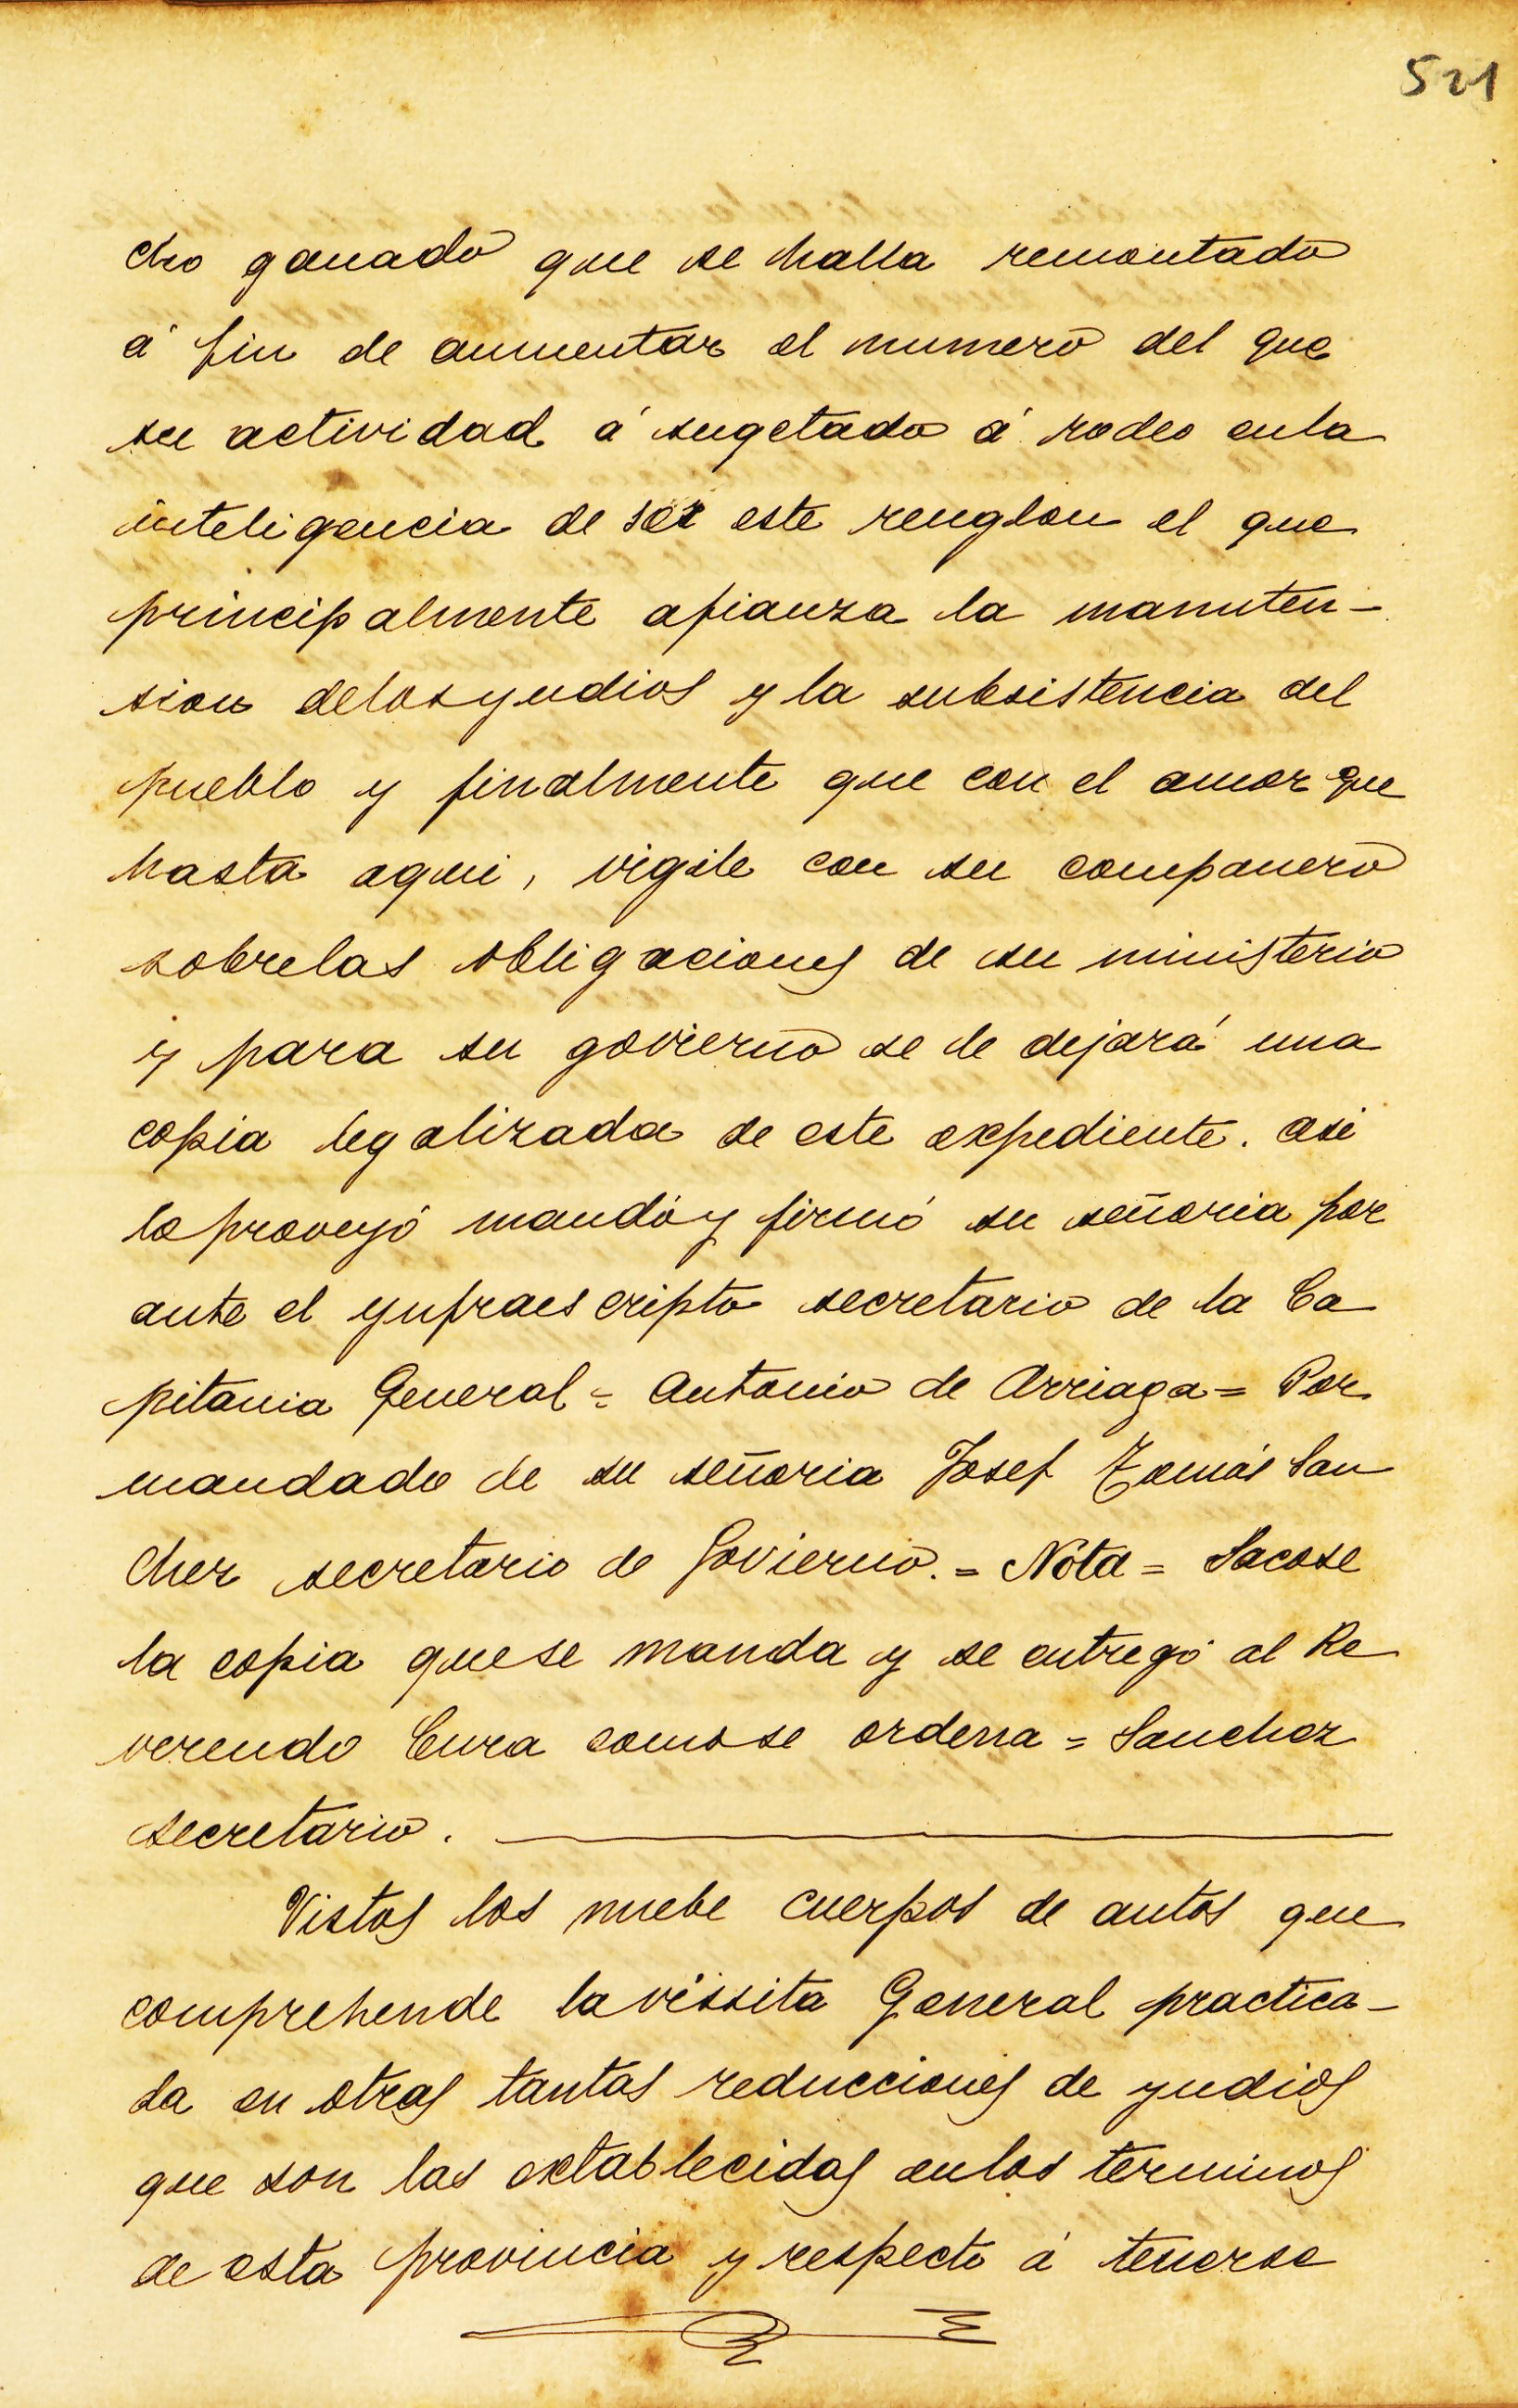 521
cho ganado que se halla remontado
á fin de aumentar el numero del que
su actividad á sugetado á rodeo enla
inteligencia de ser este renglon el que
principalmente afianza la manuten-
sion delosyndios y la subsistencia del
pueblo y finalmente que con el amor que
hasta aqui, vigile con su companero
sobrelas obligaciones de su ministerio
y para su govierno se le dejará una
copia legalizada de este expediente. asi
loproveyó mandó y firmó su señoria por
ante el ynfraescripto secretario de la Ca
pitania General = Antonio de Arriaga = Por
mandado de su señoria Josef Tomás San
chez secretario de Govierno. = Nota = Sacose
la copia quese manda y se entregó al Re
verendo Cura comose ordena = Sanchez
secretario.
Vistos los nuebe cuerpos de autos que
comprehende lavissita General practica-
da en otras tantas reducciones de yndios
que son las extablecidas enlos terminos
de esta provincia y respecto á tenerse